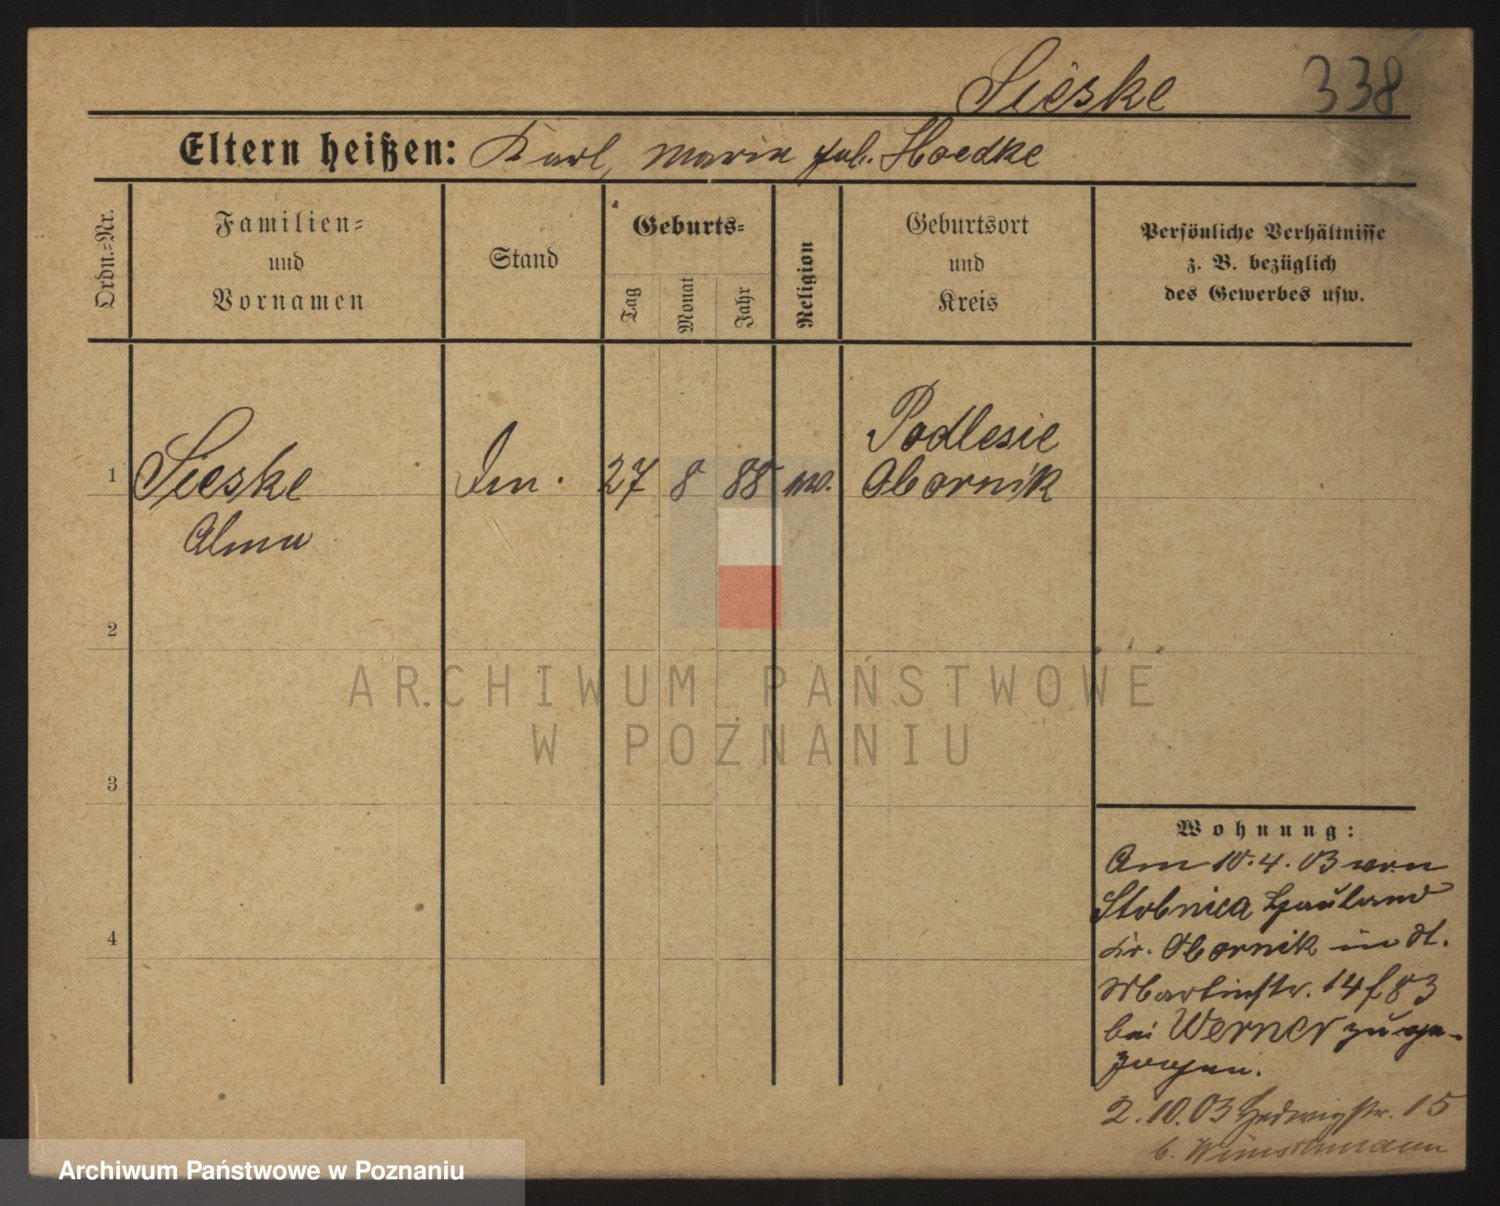 Sieske 338
Eltern heißen: Karl, Maria geb. Hoedke
Ordn.=Nr.
Familien=
und
Vornamen
Stand
Geburts=
Tag
Monat
Jahr
Religion
Geburtsort
und
Kreis
Persönliche Verhältnisse
z. B. bezüglich
des Gewerbes usw.
Podlesie
1 Sieske 27 8 88 Obornik
Alma
2
ARCHIWUM PAŃSTWOWE
W POZNANIU
3
Wohnung:
Am 10.4.03 von
Stobnica Hauland
Kr. Obornik in St.
Martinstr. 14
bei Werner zuge-
zogen.
2.10.03 Hedwigstr. 15
b.
4
Archiwum Państwowe w Poznaniu